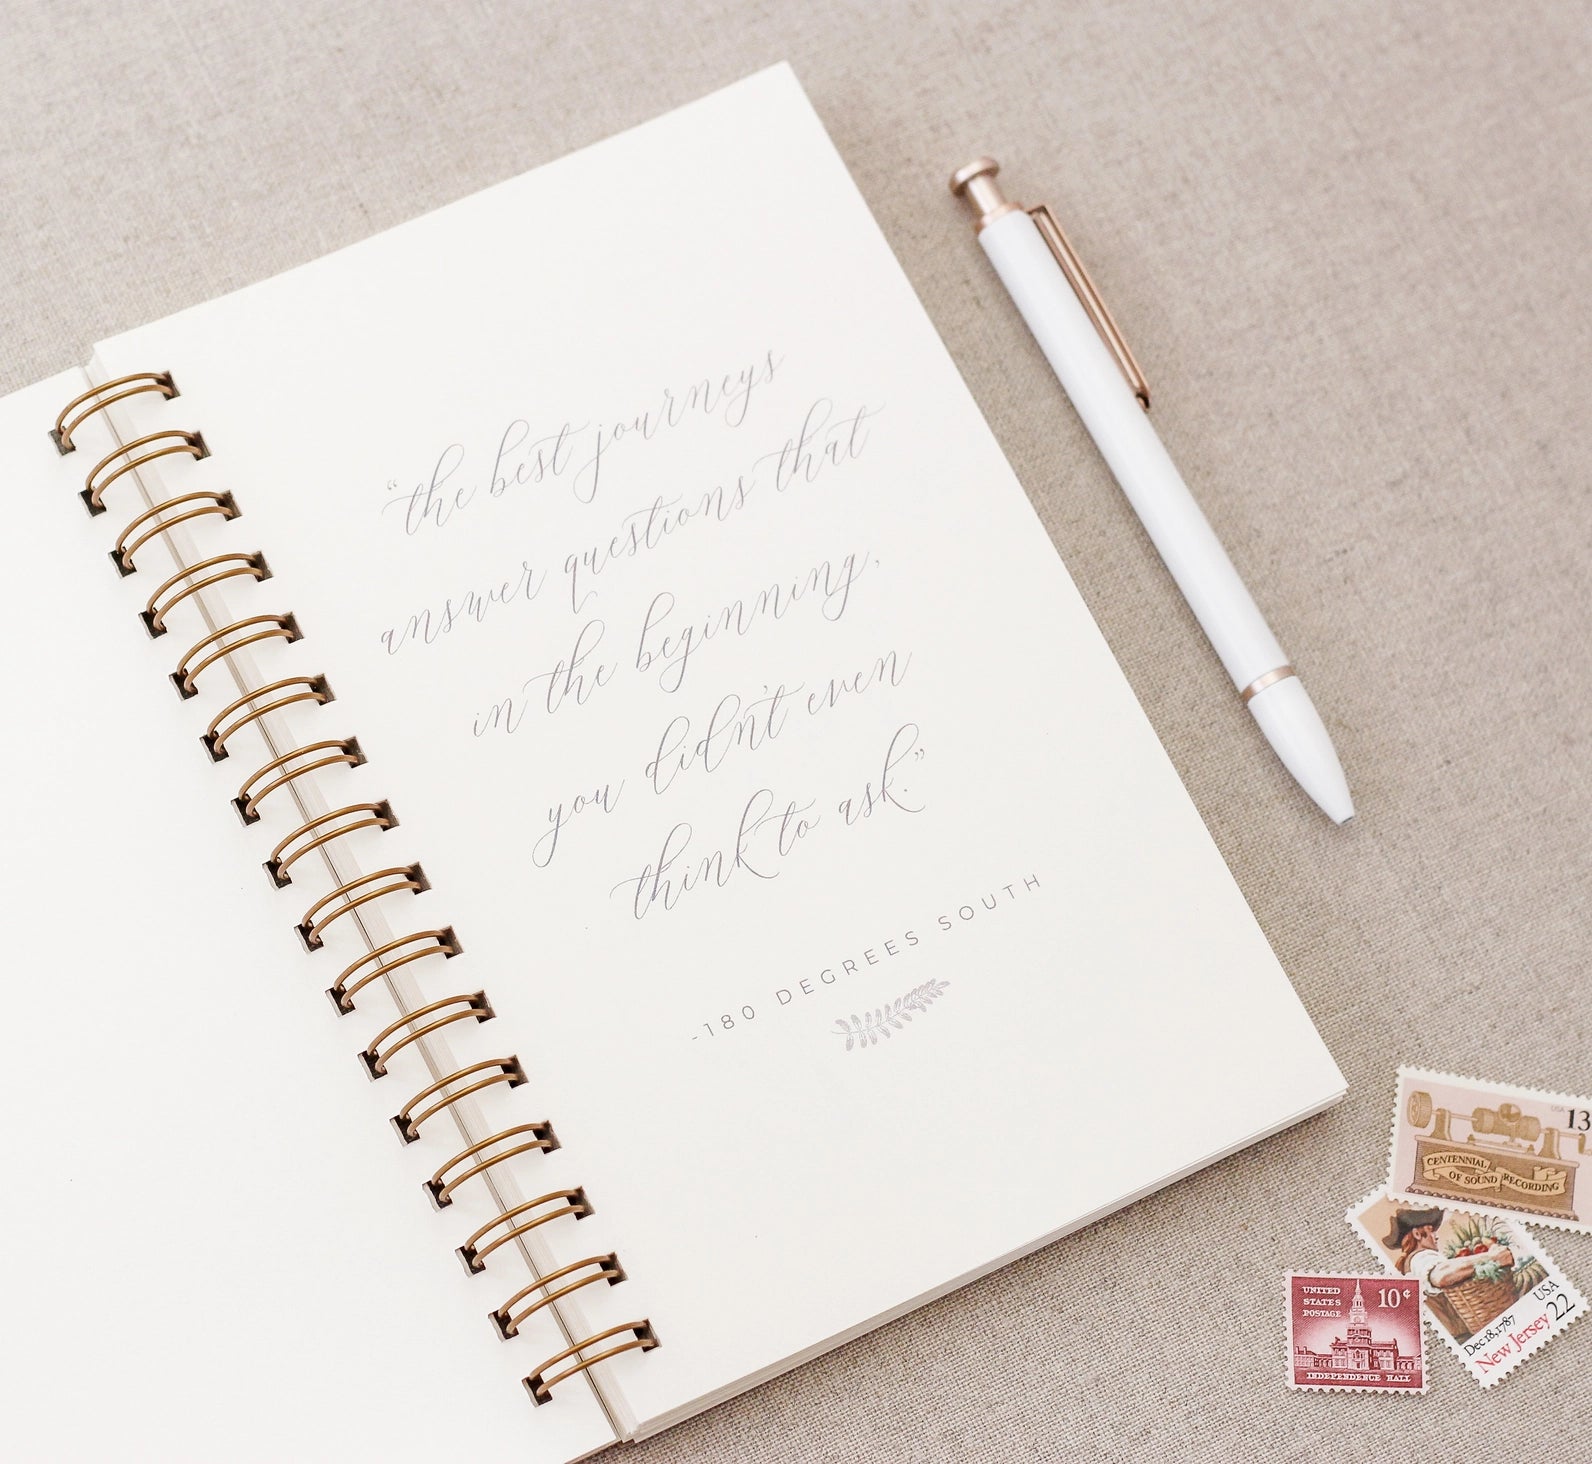 “the best journeys
answer questions that
in the beginning,
you didn't even
think to ask.”
-180 DEGREES SOUTH
USA 13
CENTENNIAL
OF SOUND RECORDING
UNITED
STATES
POSTAGE
10¢
INDEPENDENCE HALL
USA
22
Dec 18, 1787
New Jersey